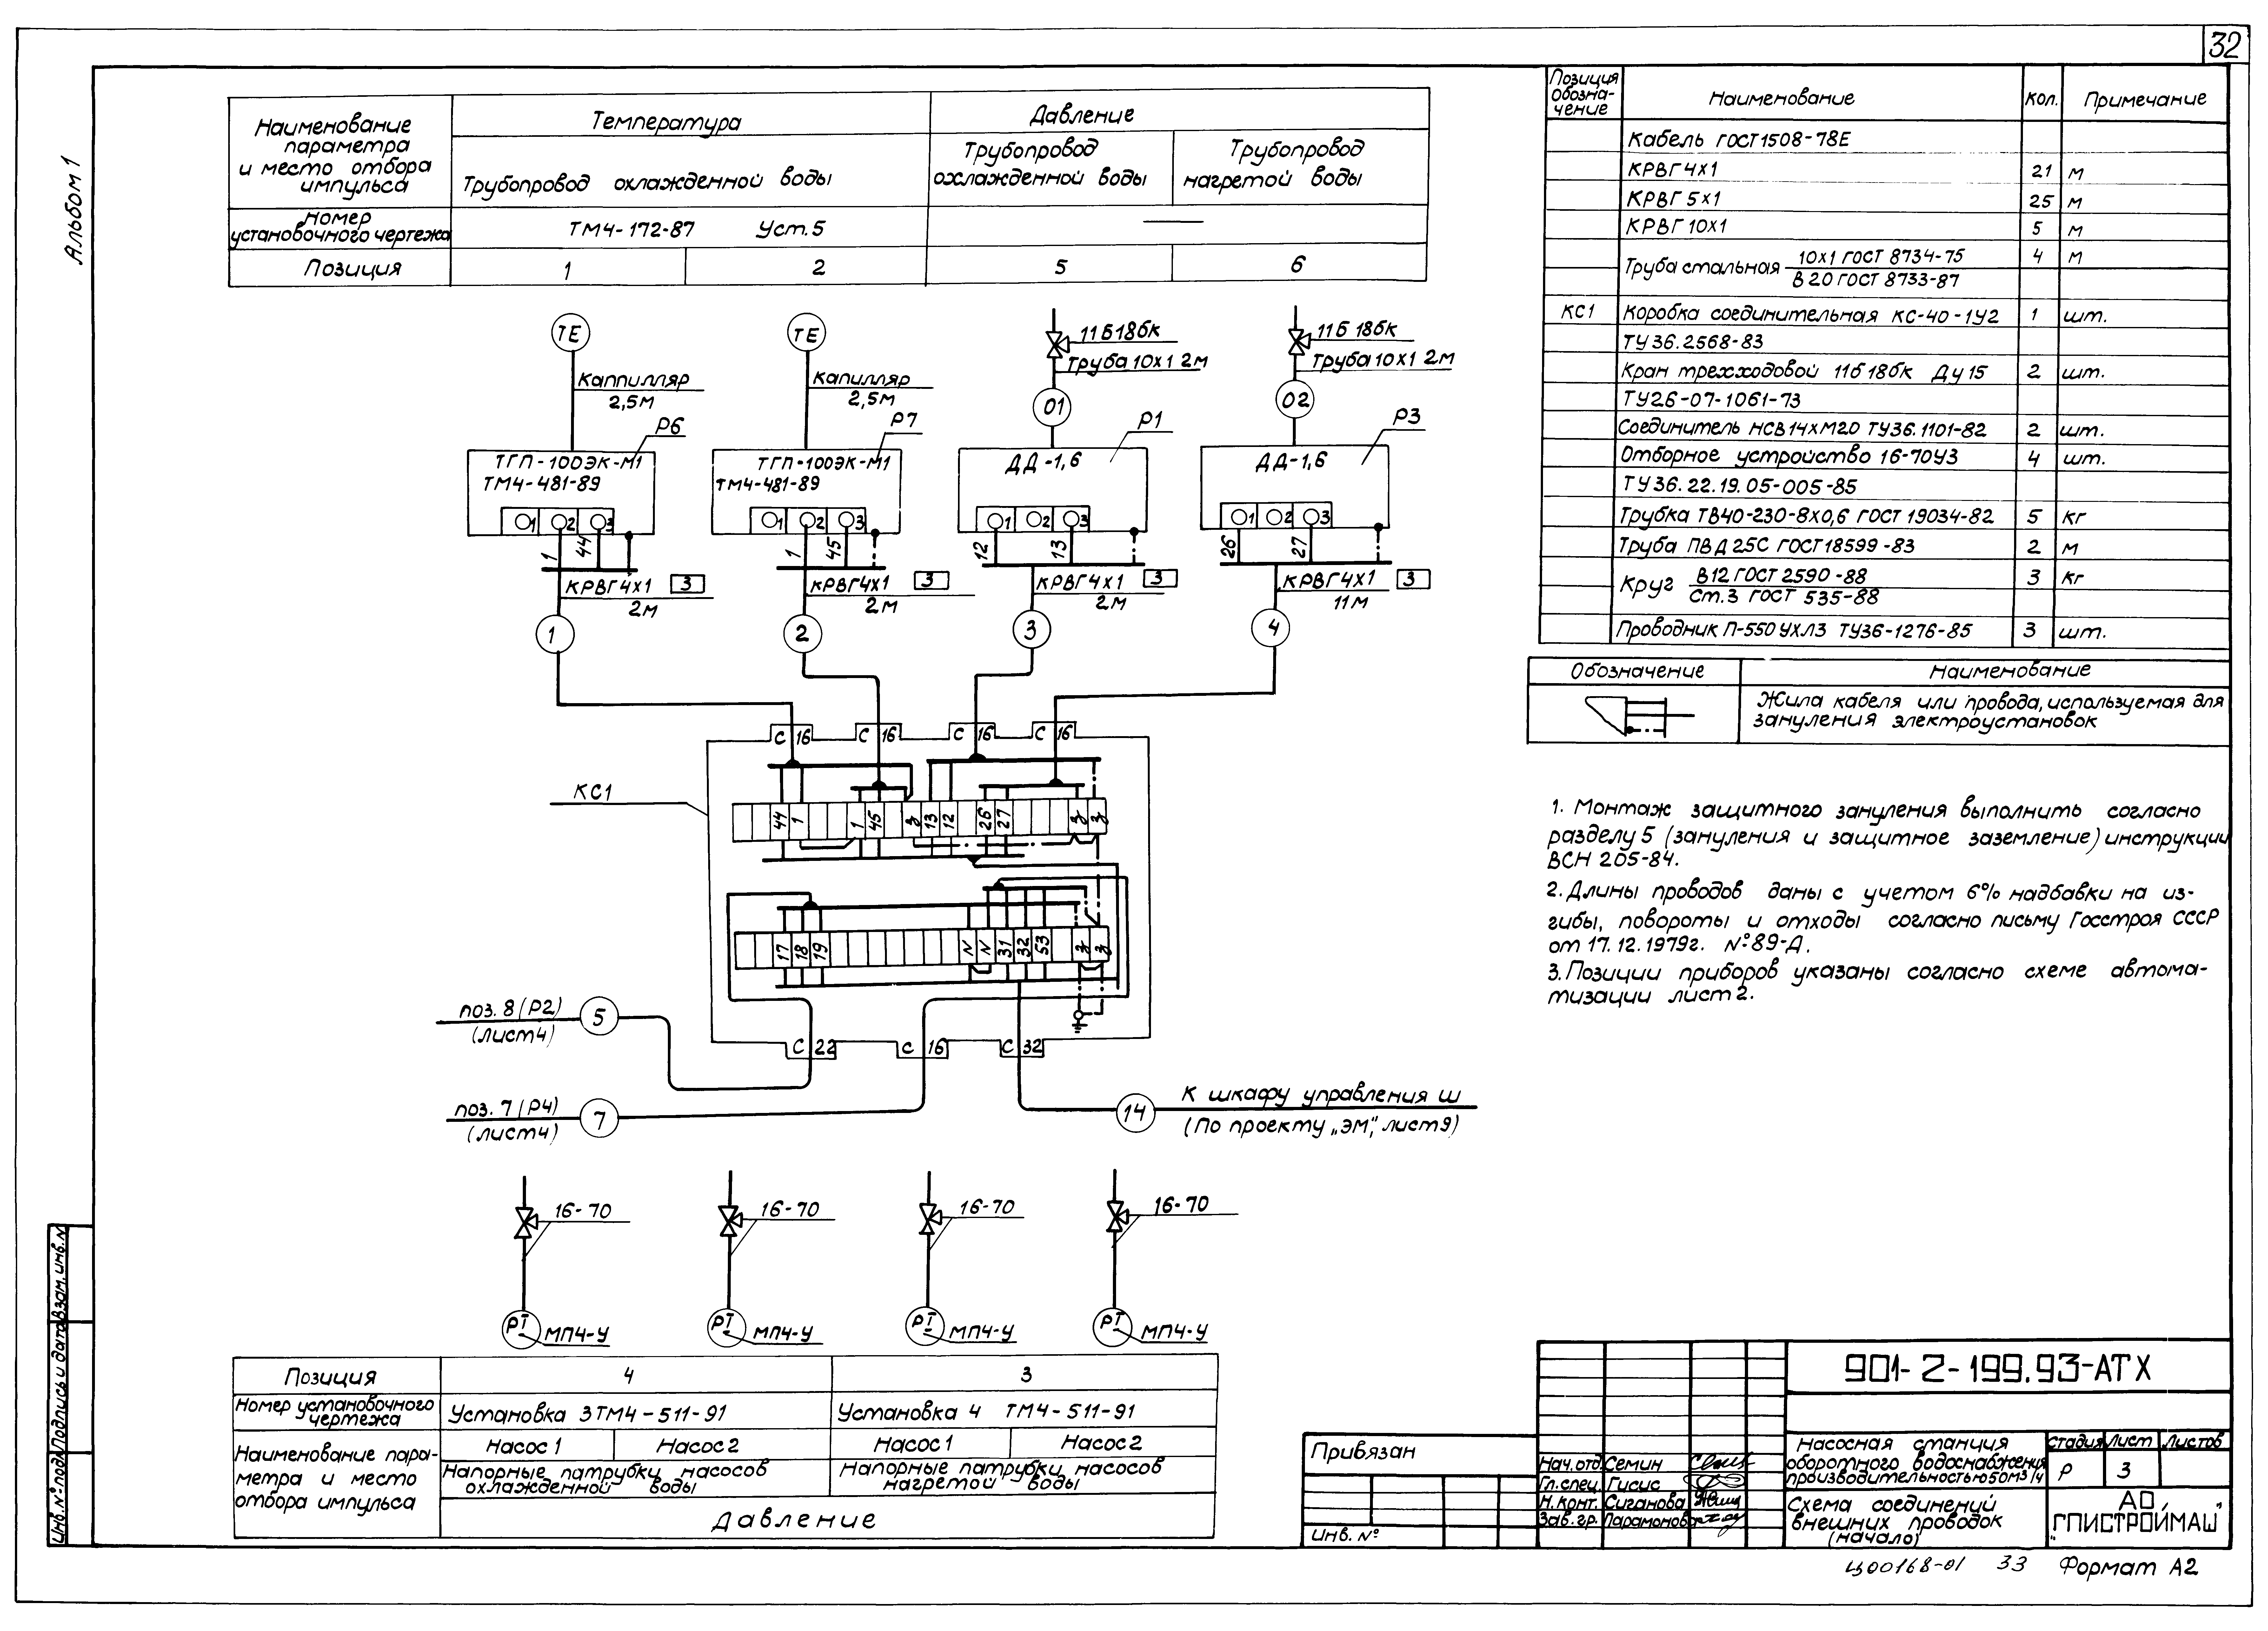 32
Альбом 1
Наименование параметра и место отбора импульса
Температура
Давление
Трубопровод охлажденной воды
Трубопровод охлажденной воды
Трубопровод нагретой воды
Номер установочного чертежа
ТМ4-172-87 Уст.5
Позиция
1
2
5
6
ТЕ
ТЕ
11б18бк
11б18бк
Труба 10х1 2м
Труба 10х1 2м
Каппилляр
2,5м
Капилляр
2,5м
01
02
Р6
Р7
Р1
Р3
ТГП-100ЭК-М1
ТМ4-481-89
ТГП-100ЭК-М1
ТМ4-481-89
ДД-1,6
ДД-1,6
1 2 3
1 2 3
1 2 3
1 2 3
1 44
1 45
12 13
26 27
КРВГ4х1 3
2м
КРВГ4х1 3
2м
КРВГ4х1 3
2м
КРВГ4х1 3
11м
1
2
3
4
С 16
С 16
С 16
С 16
КС1
44 1 1 45 З 13 12 26 27 З З
17 18 19 N N 31 32 53 З З
поз. 8 (Р2)
(лист4)
5
С 22
С 16
С 32
поз. 7 (Р4)
(лист4)
7
14
К шкафу управления Ш
(По проекту „ЭМ", лист9)
16-70
16-70
16-70
16-70
PI
МП4-У
PI
МП4-У
PI
МП4-У
PI
МП4-У
Позиция
4
3
Номер установочного чертежа
Установка 3ТМ4-511-91
Установка 4 ТМ4-511-91
Наименование пара-
метра и место
отбора импульса
Насос 1
Насос 2
Насос 1
Насос 2
Напорные патрубки насосов охлажденной воды
Напорные патрубки насосов нагретой воды
Давление
Позиция Обозна-чение
Наименование
Кол.
Примечание
Кабель ГОСТ1508-78Е
КРВГ4х1 21 м
КРВГ 5х1 25 м
КРВГ 10х1 5 м
Труба стальная 10х1 ГОСТ 8734-75 4 м
В 20 ГОСТ 8733-87
КС1 Коробка соединительная КС-40-1У2 1 шт.
ТУ36.2568-83
Кран трехходовой 11б18бк Ду15 2 шт.
ТУ26-07-1061-73
Соединитель НСВ14хМ20 ТУ36.1101-82 2 шт.
Отборное устройство 16-70У3 4 шт.
ТУ36.22.19.05-005-85
Трубка ТВ40-230-8х0,6 ГОСТ 19034-82 5 кг
Труба ПВД25С ГОСТ18599-83 2 м
Круг В12 ГОСТ 2590-88 3 кг
Ст.3 ГОСТ 535-88
Проводник П-550УХЛ3 ТУ36-1276-85 3 шт.
Обозначение
Наименование
Жила кабеля или провода, используемая для
зануления электроустановок
1. Монтаж защитного зануления выполнить согласно
разделу 5 (зануления и защитное заземление) инструкции
ВСН 205-84.
2. Длины проводов даны с учетом 6% надбавки на из-
гибы, повороты и отходы согласно письму Госстроя СССР
от 17.12.1979г. №89-Д.
3. Позиции приборов указаны согласно схеме автома-
тизации лист 2.
901-2-199.93-АТХ
Привязан
Инв. №
Нач.отд. Семин
Гл.спец. Гисис
Н.конт. Сиганова
Зав.гр. Парамонова
Насосная станция
оборотного водоснабжения
производительностью50м3/ч
Стадия Лист Листов
Р 3
Схема соединений
внешних проводок
(начало)
АО
"ГПИСТРОЙМАШ"
Инв.№подл. Подпись и дата Взам.инв.№
Ц00168-01 33
Формат А2